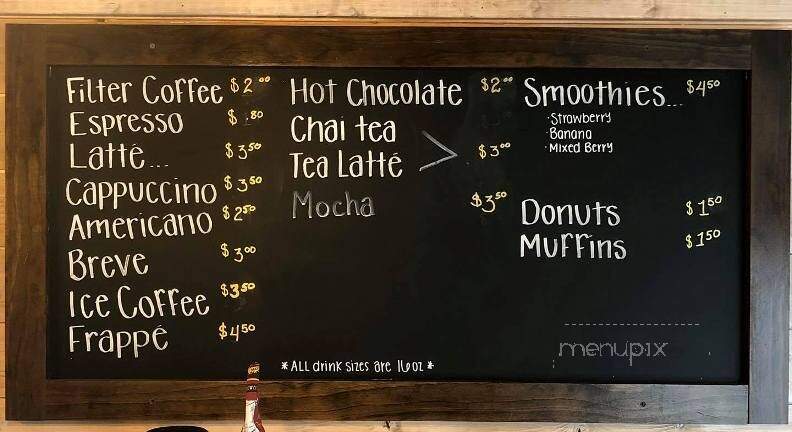 Filter Coffee $2.00
Espresso $.80
Latté... $3.50
Cappuccino $3.50
Americano $2.50
Breve $3.00
Ice Coffee $3.50
Frappé $4.50
Hot Chocolate $2.00
Chai tea
Tea Latté > $3.00
Mocha $3.50
*ALL drink sizes are 16oz*
Smoothies... $4.50
·Strawberry
·Banana
·Mixed Berry
Donuts $1.50
Muffins $1.50
menupix